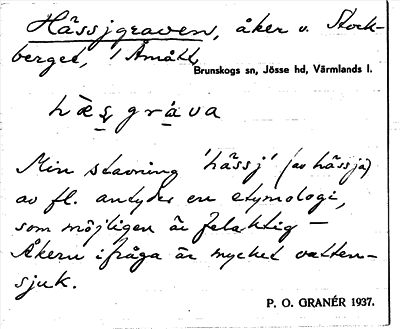 Hässjgraven, åker v. Stock-
berget, i Åmått
Brunskogs sn, Jösse hd, Värmlands l.
hæs̭ grá̱va
Min stavning 'hässj' (av hässja)
av fl. antyder en etymologi,
som möjligen är felaktig –
Åkern ifråga är mycket vatten-
sjuk.
P. O. GRANÉR 1937.